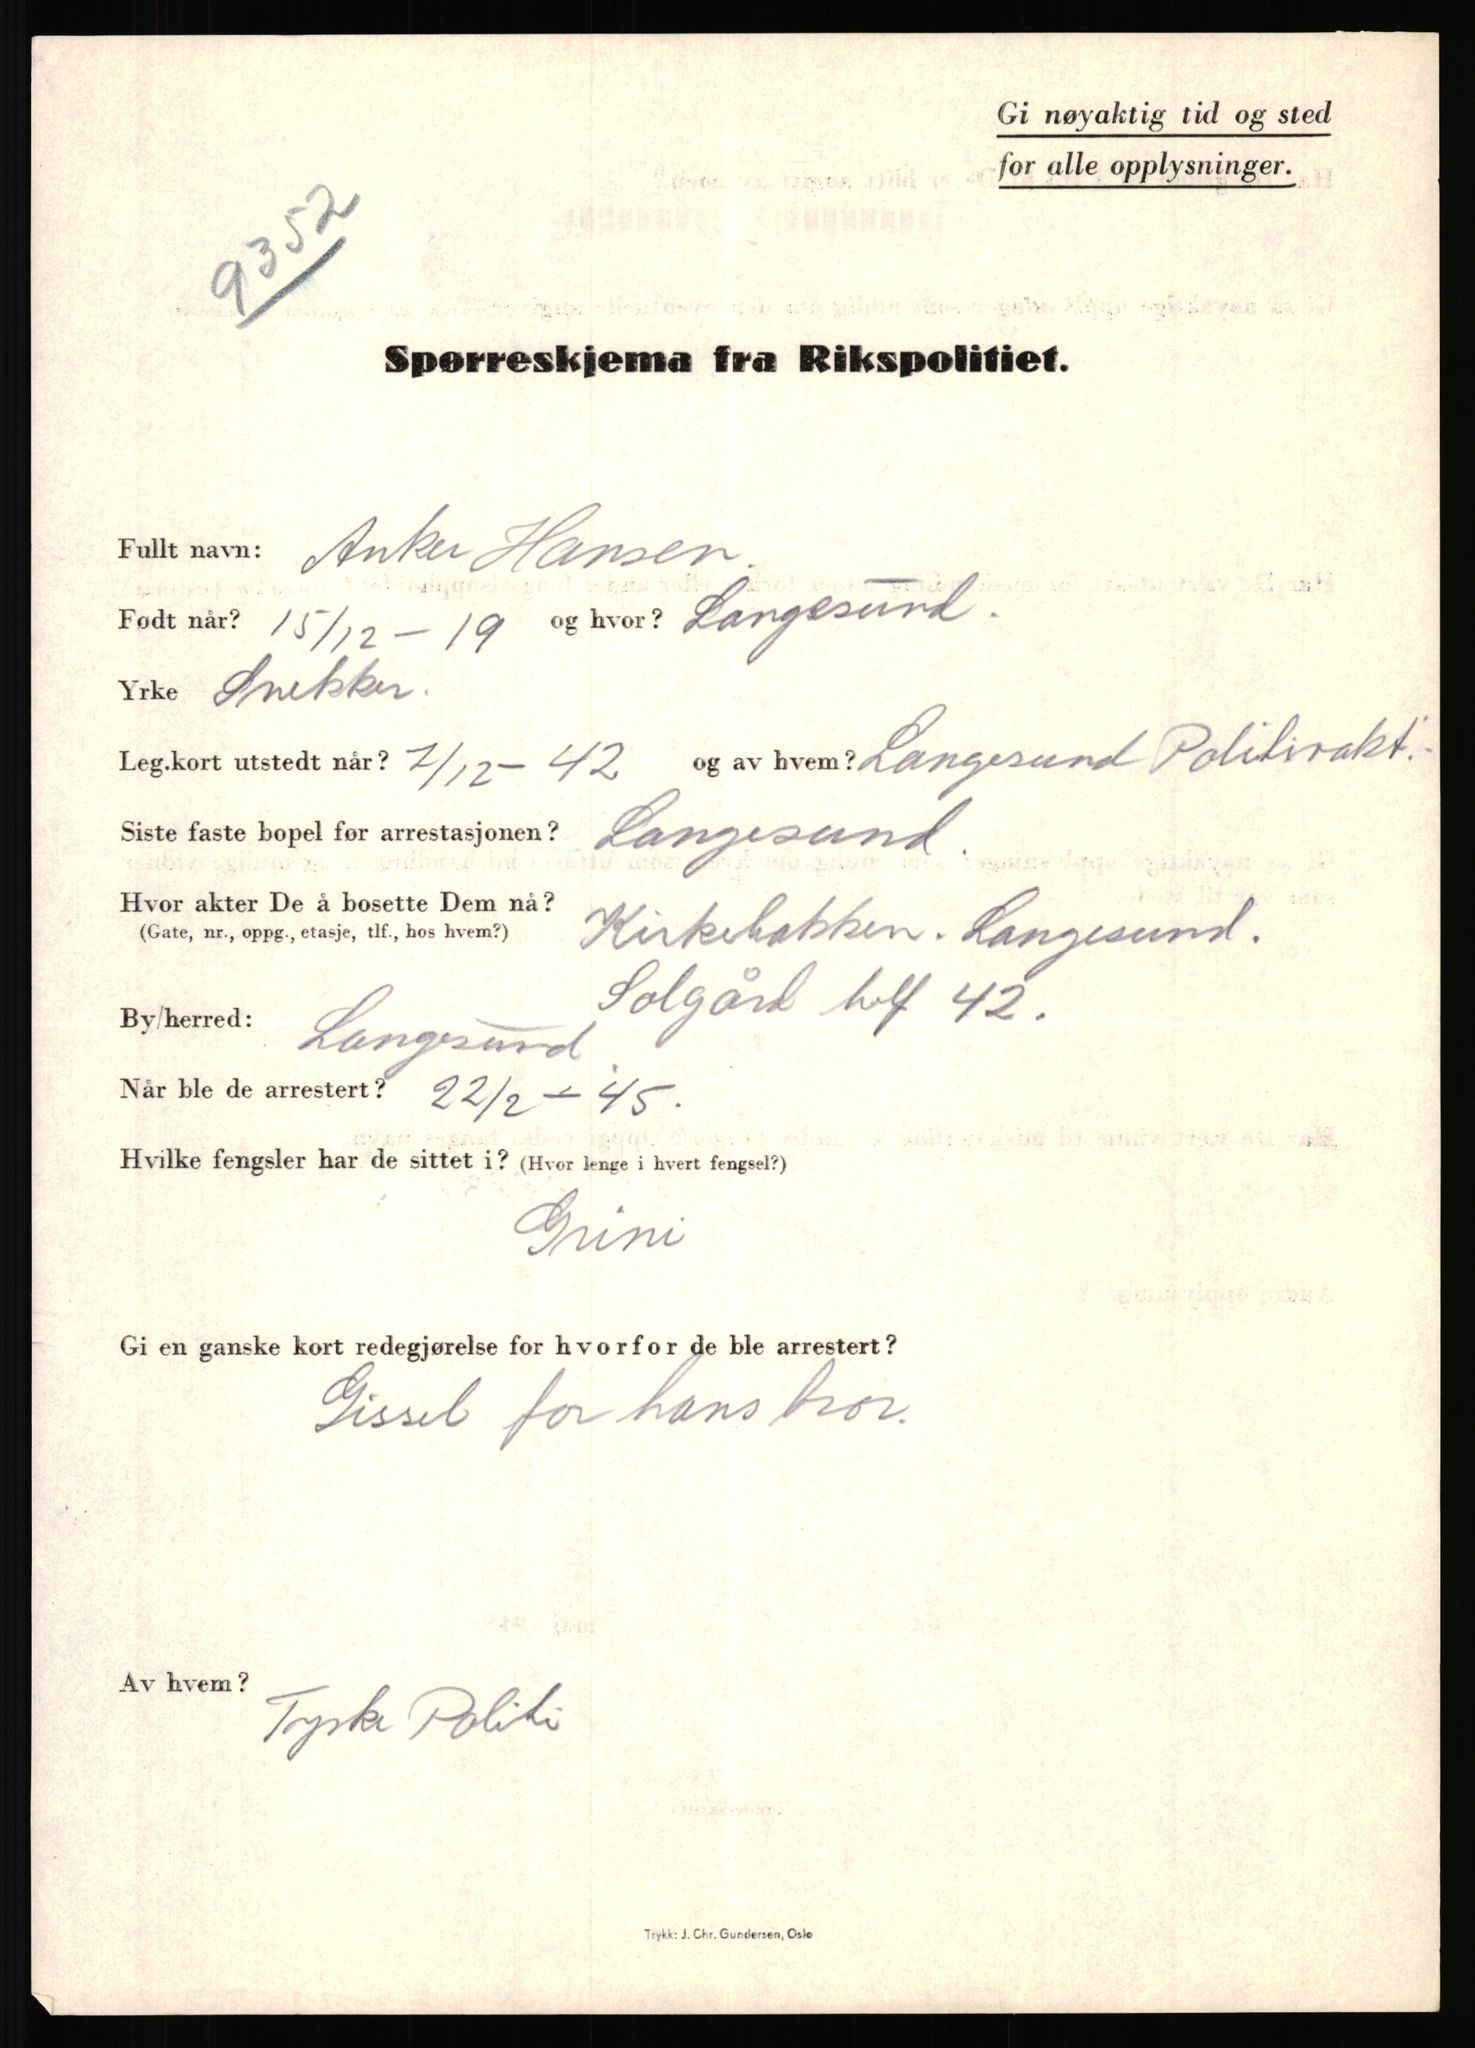 Gi nøyaktig tid og sted
for alle opplysninger.
9352
Spørreskjema fra Rikspolitiet.
Fullt navn: Anker Hansen.
Født når? 15/12 - 19 og hvor? Langesund.
Yrke Snekker.
Leg.kort utstedt når? 7/12 - 42 og av hvem? Langesund Politivakt.
Siste faste bopel før arrestasjonen? Langesund.
Hvor akter De å bosette Dem nå? Kirkebakken. Langesund.
(Gate, nr., oppg., etasje, tlf., hos hvem?)
Solgård telf 42.
By/herred: Langesund
Når ble de arrestert? 22/2 - 45.
Hvilke fengsler har de sittet i? (Hvor lenge i hvert fengsel?)
Grini
Gi en ganske kort redegjørelse for hvorfor de ble arrestert?
Gissel for hans bror.
Av hvem? Tyske Politi
Trykk: J. Chr. Gundersen, Oslo